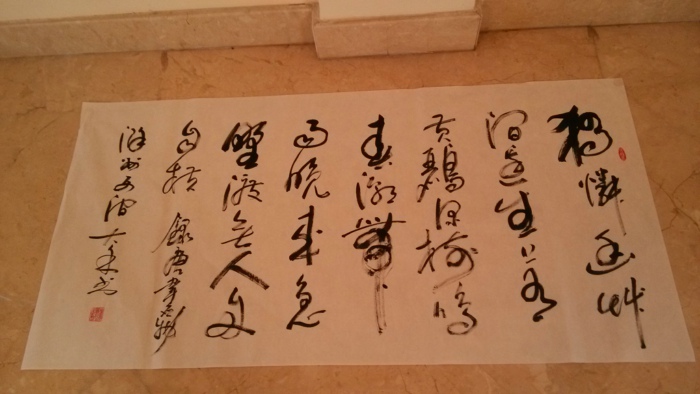 獨憐幽艸
澗邊生上有
黄鸝深樹鳴
春潮帶
雨晚來急
壄渡無人舟
自横 録唐韋應物
滁州西澗 大 书